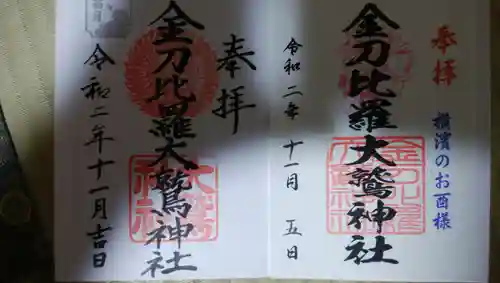 奉拝
横濱のお酉様
金刀比羅大鷲神社
令和二年十一月五日
奉拝
金刀比羅大鷲神社
令和二年十一月吉日